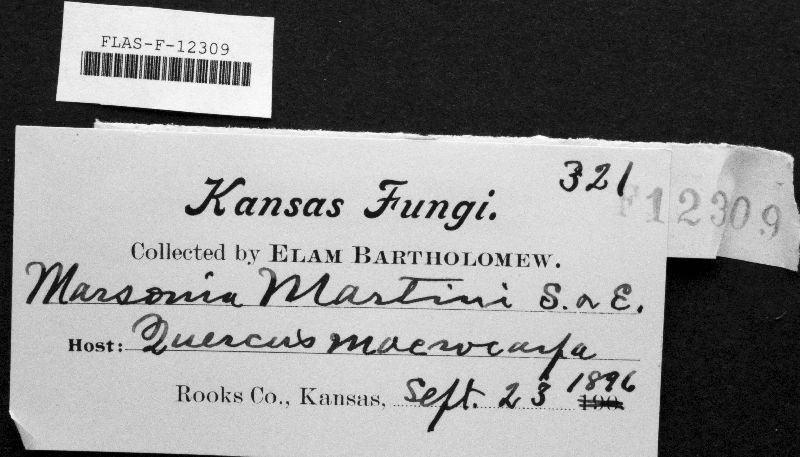 FLAS-F-12309
321
Kansas Fungi.
F12309
Collected by ELAM BARTHOLOMEW.
Marsonia Martini S. & E.
Host: Quercus macrocarpa
Rooks Co., Kansas, Sept. 23 1896 190